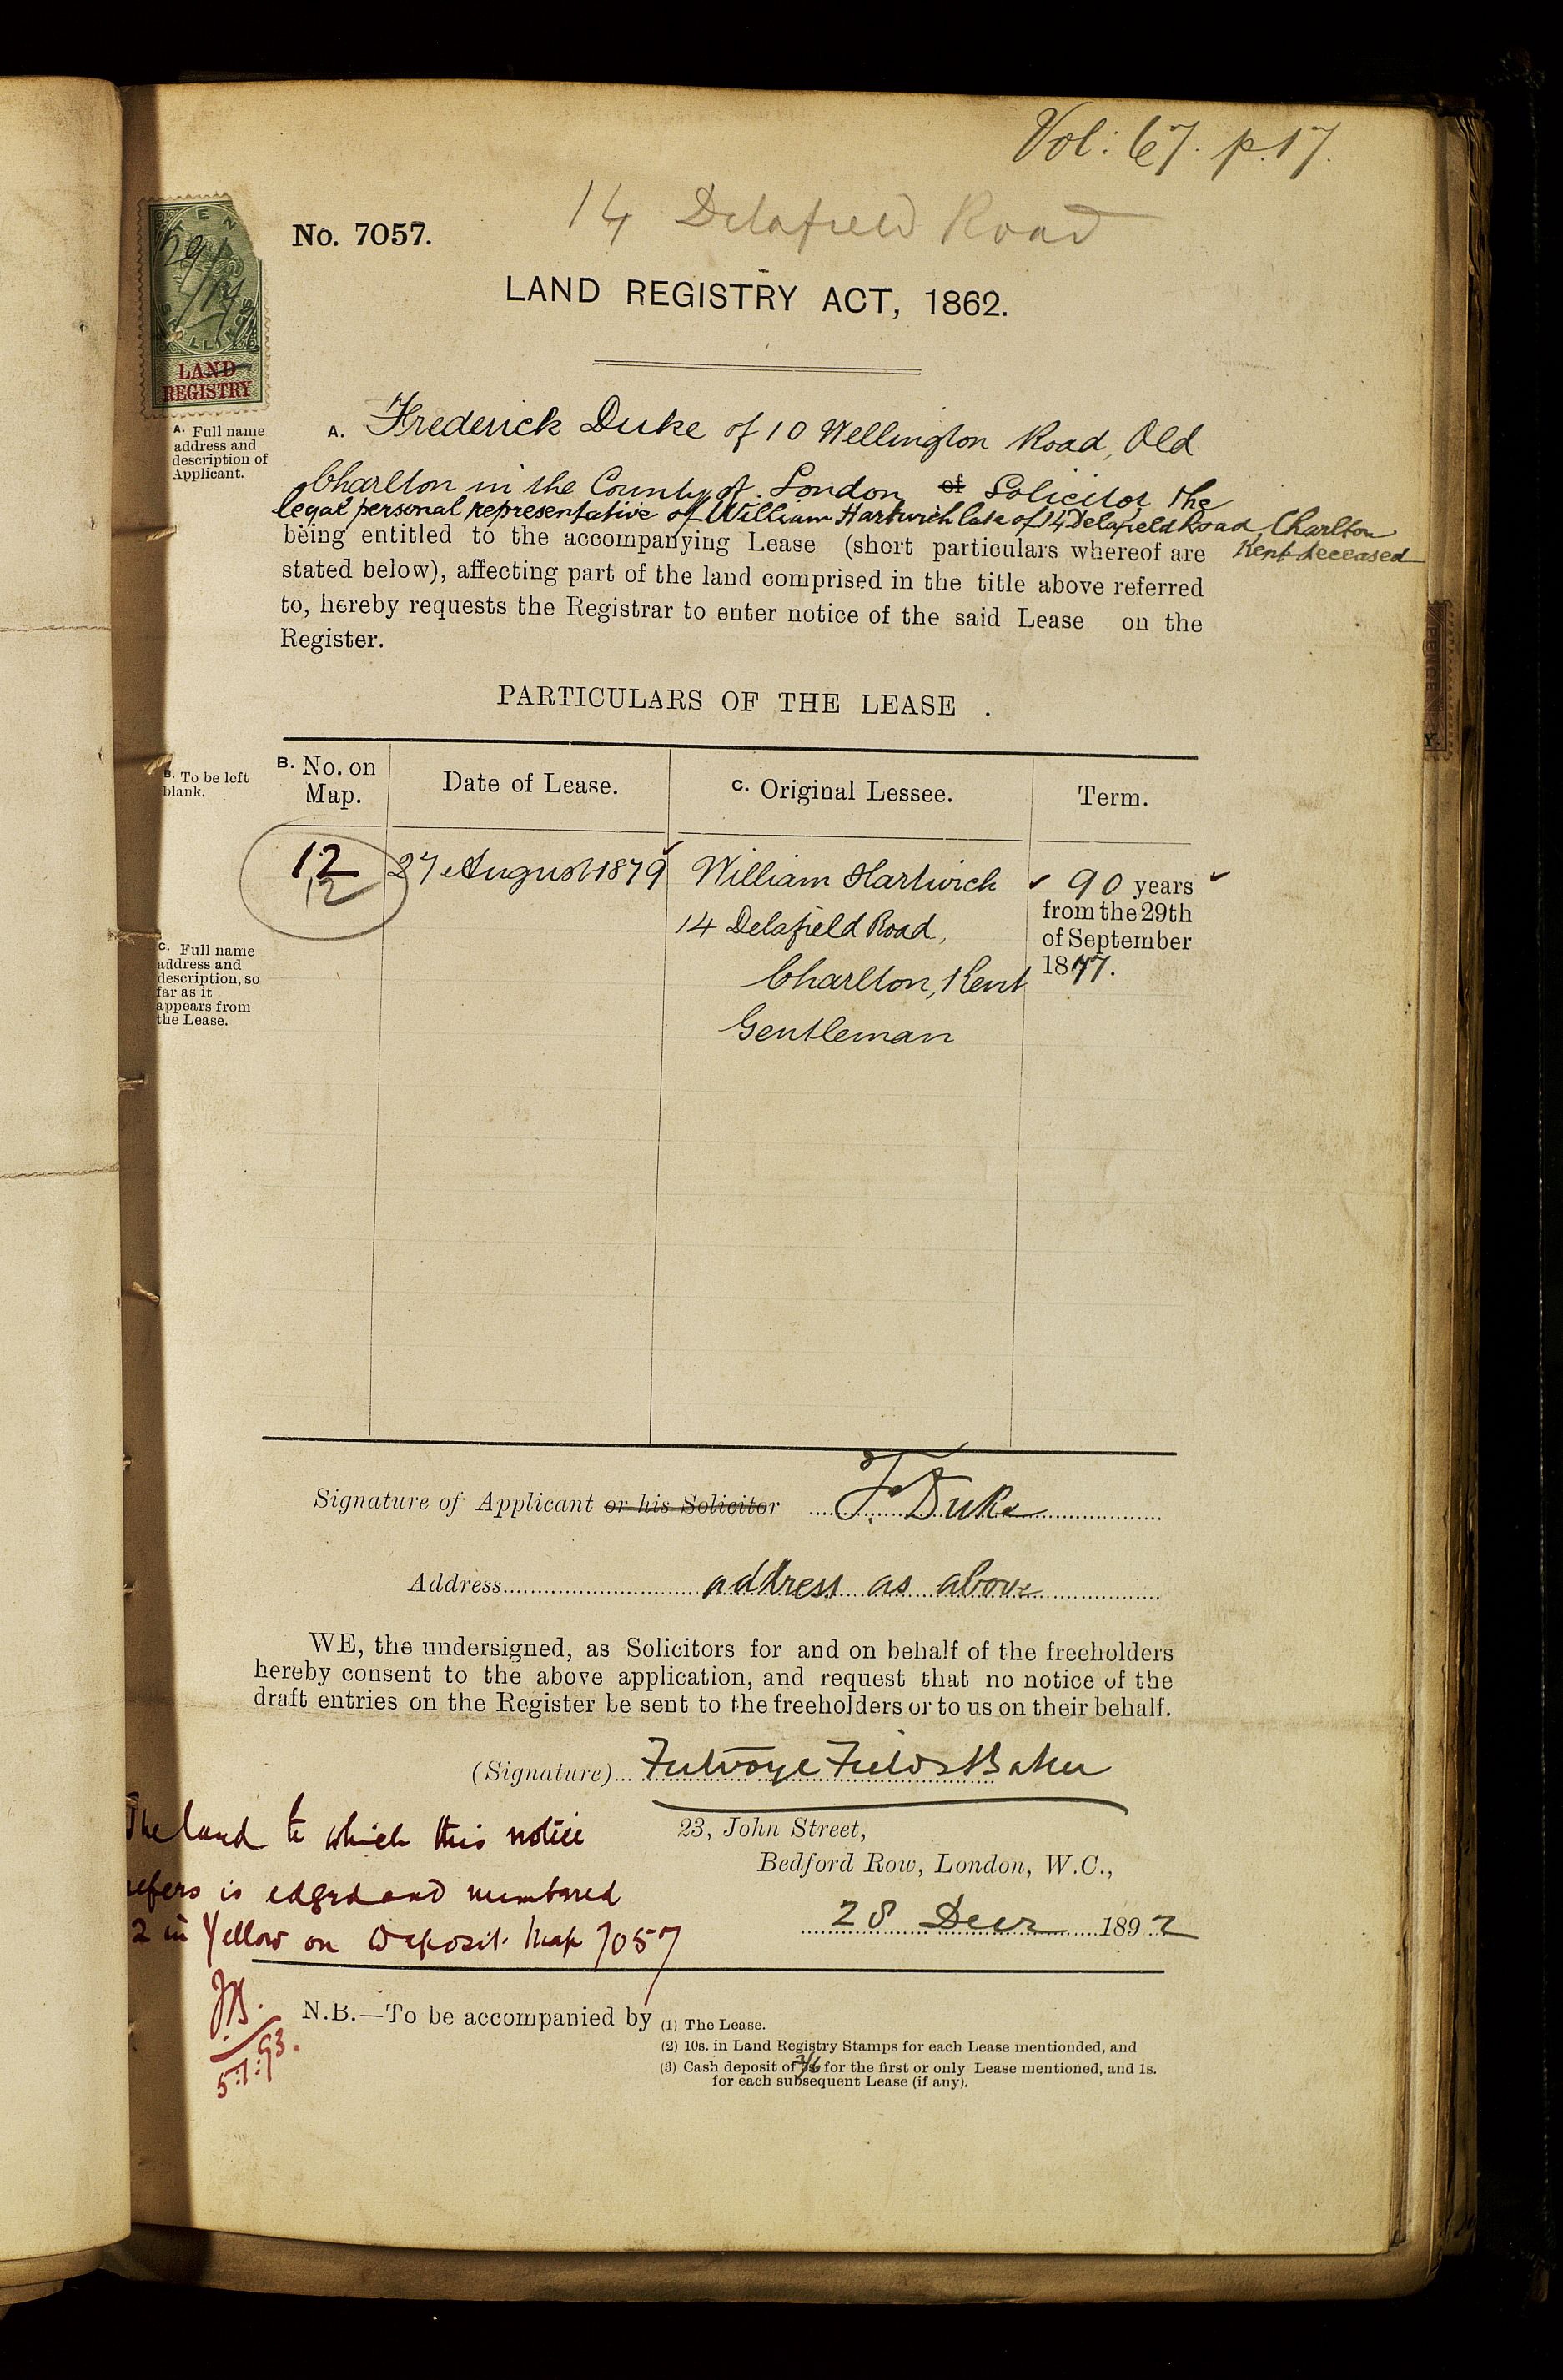 Vol: 67. p.17.
14 Delafield Road
No. 7057.
TEN
SHILLINGS
LAND
REGISTRY
LAND REGISTRY ACT, 1862.
A. Full name
address and
description of
Applicant.
A. Frederick Duke of 10 Wellington Road, Old
Charlton in the County of London of Solicitor the
legal personal representative of William Hartwich late of 14 Delafield Road, Charlton
Kent deceased
being entitled to the accompanying Lease (short particulars whereof are
stated below), affecting part of the land comprised in the title above referred
to, hereby requests the Registrar to enter notice of the said Lease on the
Register.
PARTICULARS OF THE LEASE .
B. To be left
blank.
B. No. on
Map.
Date of Lease.
C. Original Lessee.
Term.
12
12
27 August 1879
William Hartwich
14 Delafield Road,
Charlton, Kent
Gentleman
90 years
from the 29th
of September
1877.
C. Full name
address and
description, so
far as it
appears from
the Lease.
Signature of Applicant or his Solicitor F. Duke
Address address as above
WE, the undersigned, as Solicitors for and on behalf of the freeholders
hereby consent to the above application, and request that no notice of the
draft entries on the Register be sent to the freeholders or to us on their behalf.
(Signature) Fulvoye Field & Baker
23, John Street,
Bedford Row, London, W.C.,
28 Decr 1892
The land to which this notice
refers is edged and numbered
2 in Yellow on Deposit Map 7057
5:1:93.
N.B.—To be accompanied by (1) The Lease.
(2) 10s. in Land Registry Stamps for each Lease mentionded, and
(3) Cash deposit of 2/6 for the first or only Lease mentioned, and 1s.
for each subsequent Lease (if any).